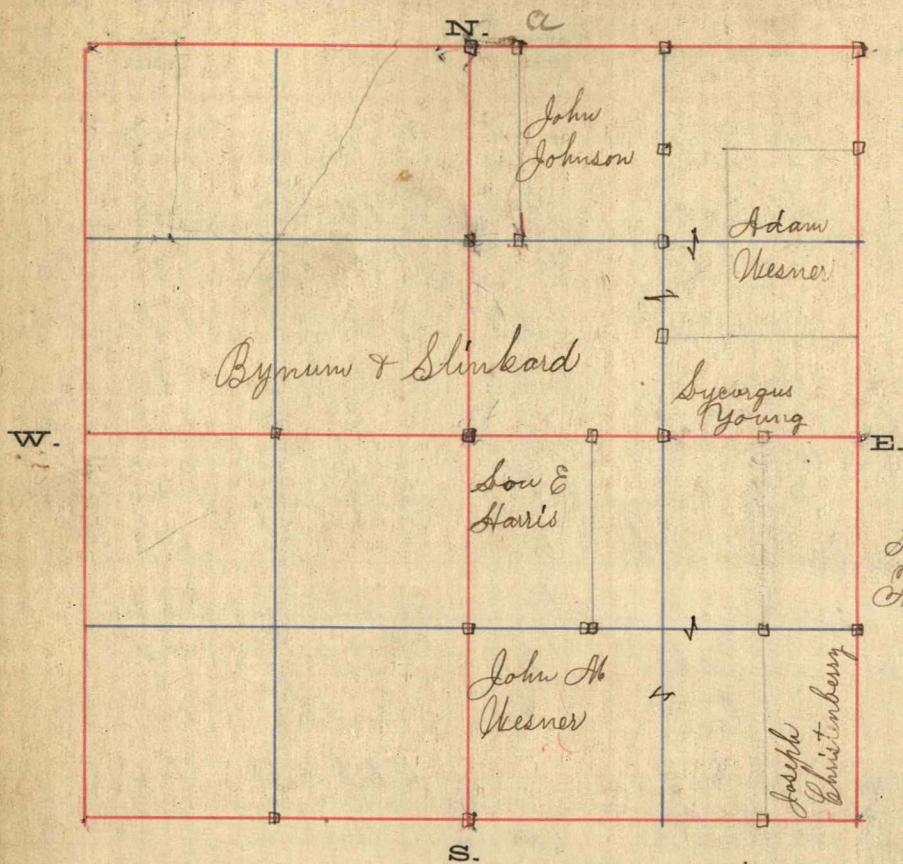 N.
a
John
Johnson
Adam
Wesner
Bynum & Slinkard
Lycurgus
Young
W.
E.
Lou E
Harris
John M
Wesner
Joseph
Christenberry
S.